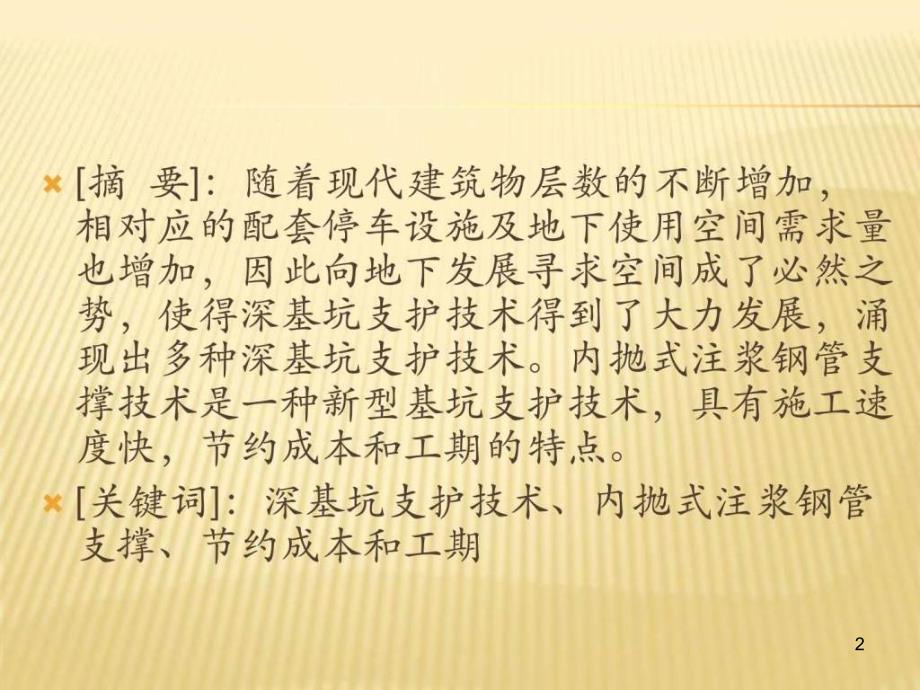 [摘 要]：随着现代建筑物层数的不断增加，
相对应的配套停车设施及地下使用空间需求量
也增加，因此向地下发展寻求空间成了必然之
势，使得深基坑支护技术得到了大力发展，涌
现出多种深基坑支护技术。内抛式注浆钢管支
撑技术是一种新型基坑支护技术，具有施工速
度快，节约成本和工期的特点。
[关键词]：深基坑支护技术、内抛式注浆钢管
支撑、节约成本和工期
2